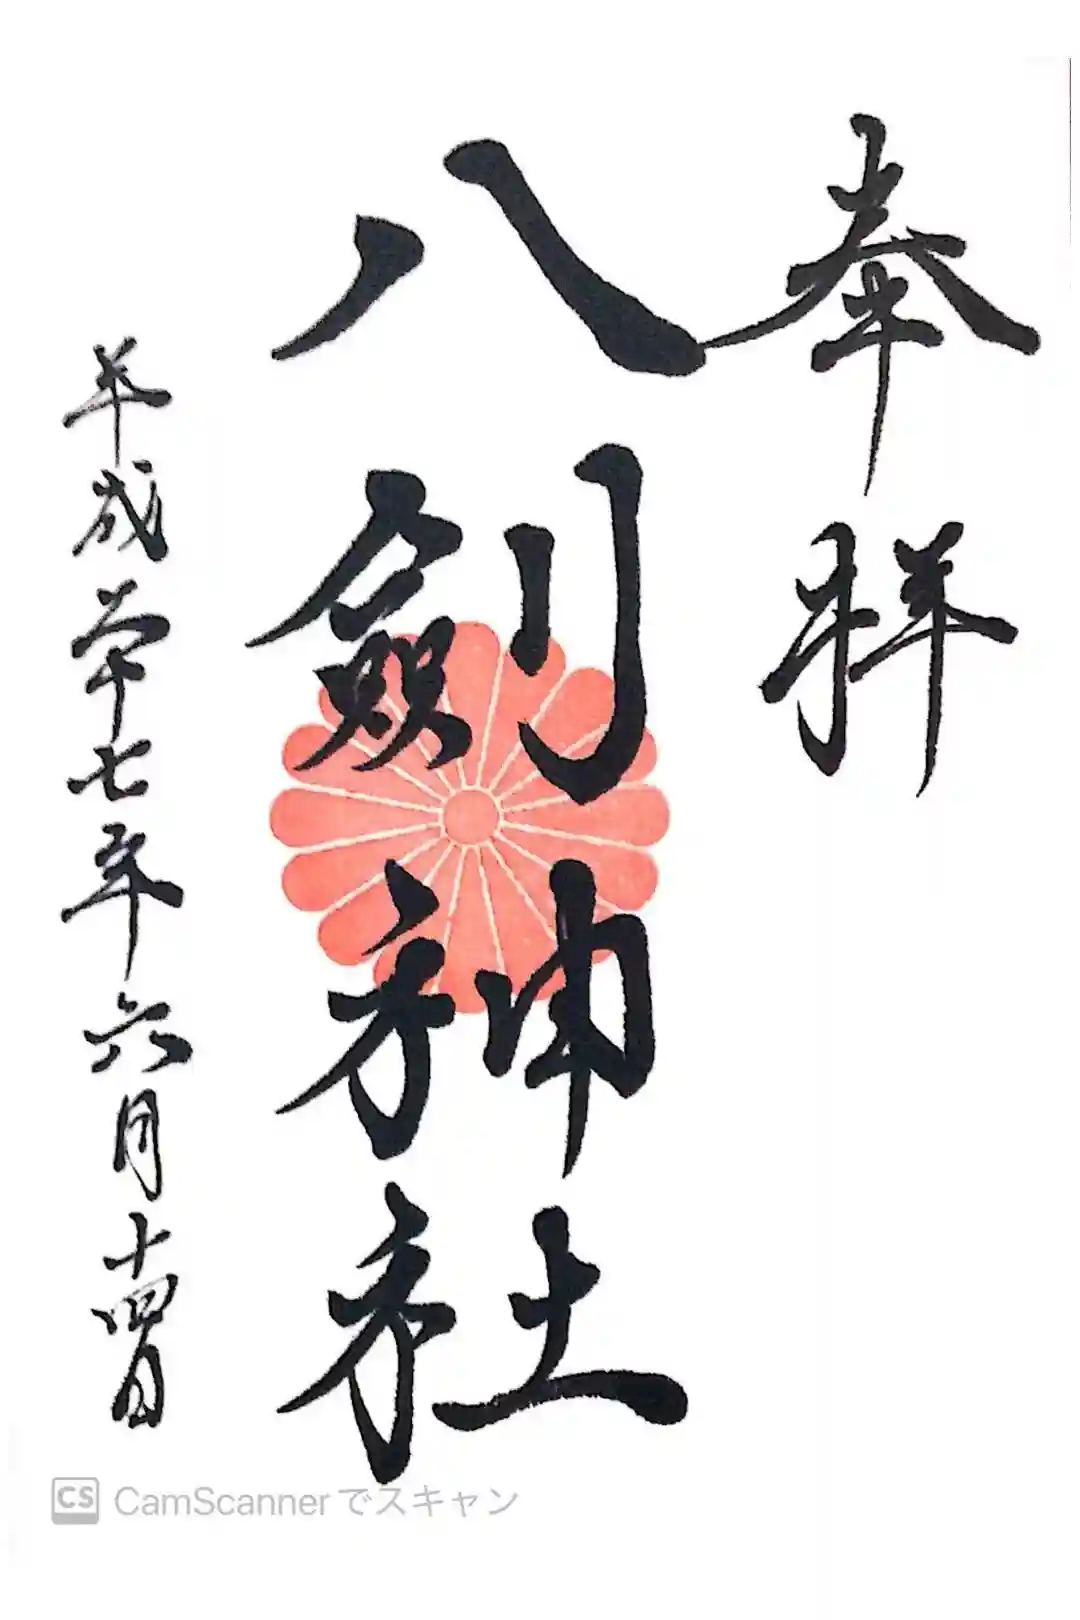 奉拝
八劔神社
平成二十七年六月十四日
CS CamScannerでスキャン